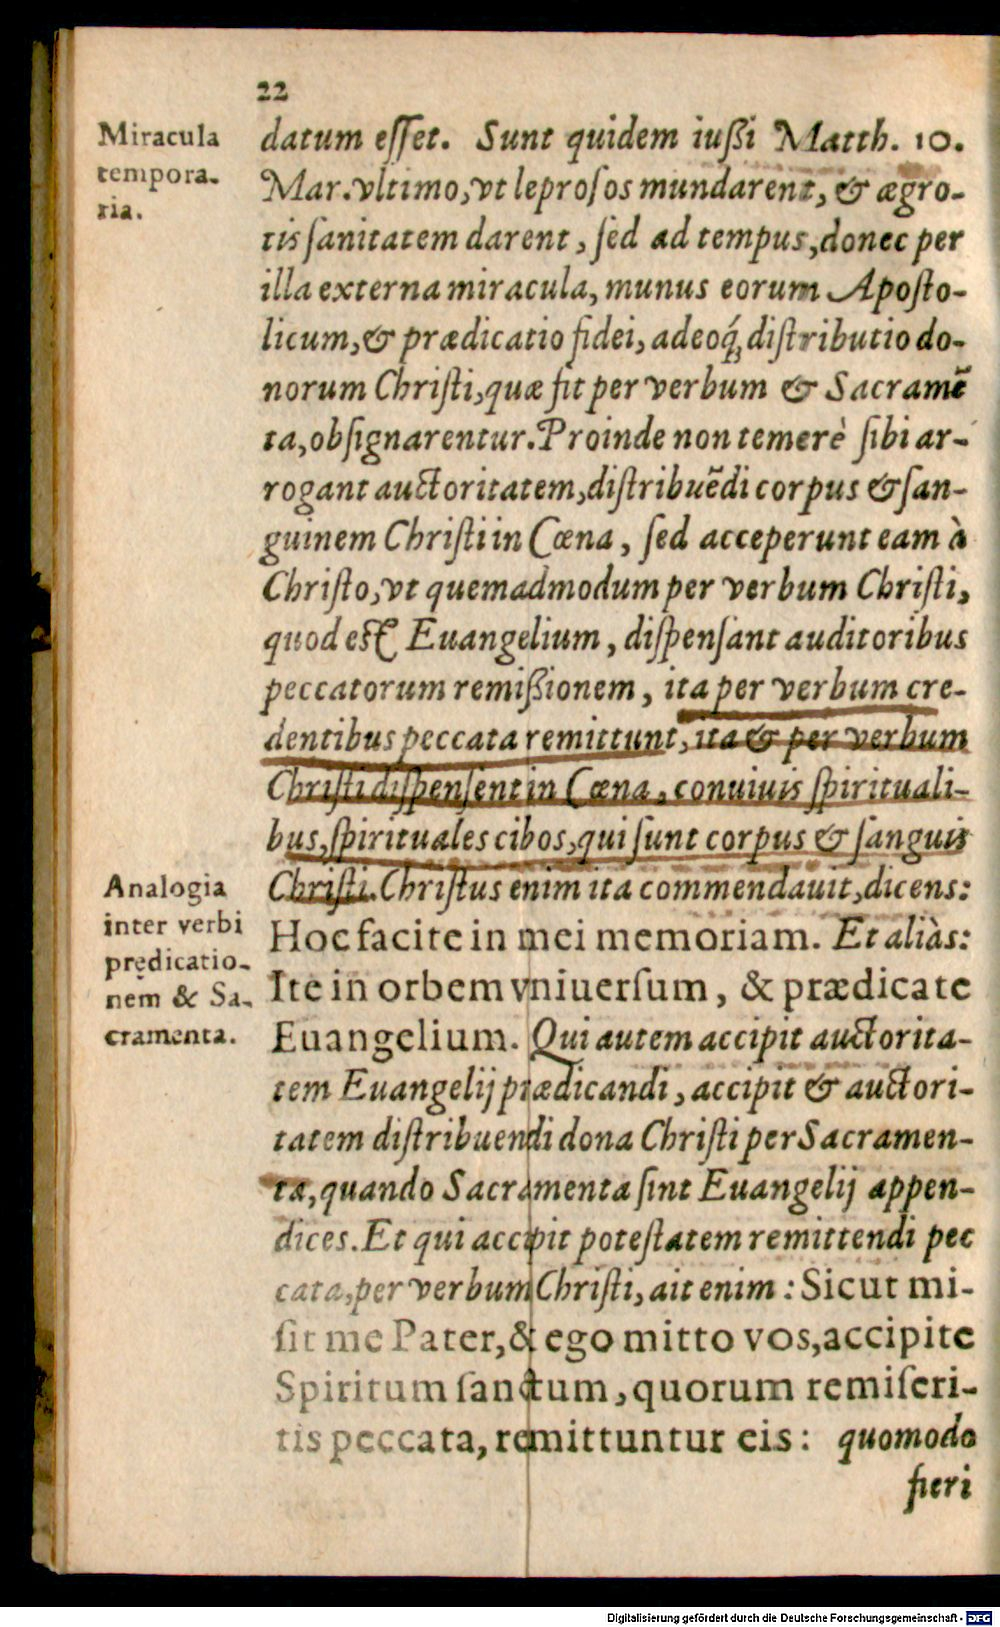 22
Miracula
tempora-
ria.
datum eſſet. Sunt quidem iuſsi Matth. 10.
Mar. vltimo, vt leproſos mundarent, & ægro-
tis ſanitatem darent, ſed ad tempus, donec per
illa externa miracula, munus eorum Apoſto-
licum, & prædicatio fidei, adeoq́; diſtributio do-
norum Chriſti, quæ fit per verbum & Sacramē
ta, obſignarentur. Proinde non temerè ſibi ar-
rogant auctoritatem, diſtribuēdi corpus & ſan-
guinem Chriſti in Cœna, ſed acceperunt eam à
Chriſto, vt quemadmodum per verbum Chriſti,
quod eſt Euangelium, diſpenſant auditoribus
peccatorum remiſsionem, ita per verbum cre-
dentibus peccata remittunt, ita & per verbum
Chriſti diſpenſent in Cœna, conuiuis ſpirituali-
bus, ſpirituales cibos, qui ſunt corpus & ſanguis
Chriſti. Chriſtus enim ita commendauit, dicens:
Analogia
inter verbi
prędicatio-
nem & Sa-
cramenta.
Hoc facite in mei memoriam. Et aliàs:
Ite in orbem vniuerſum, & prædicate
Euangelium. Qui autem accipit auctorita-
tem Euangelij prædicandi, accipit & auctori-
tatem diſtribuendi dona Chriſti per Sacramen-
ta, quando Sacramenta ſint Euangelij appen-
dices. Et qui accipit poteſtatem remittendi pec
cata, per verbum Chriſti, ait enim: Sicut mi-
ſit me Pater, & ego mitto vos, accipite
Spiritum ſanctum, quorum remiſeri-
tis peccata, remittuntur eis: quomodo
fieri
Digitalisierung gefördert durch die Deutsche Forschungsgemeinschaft - DFG